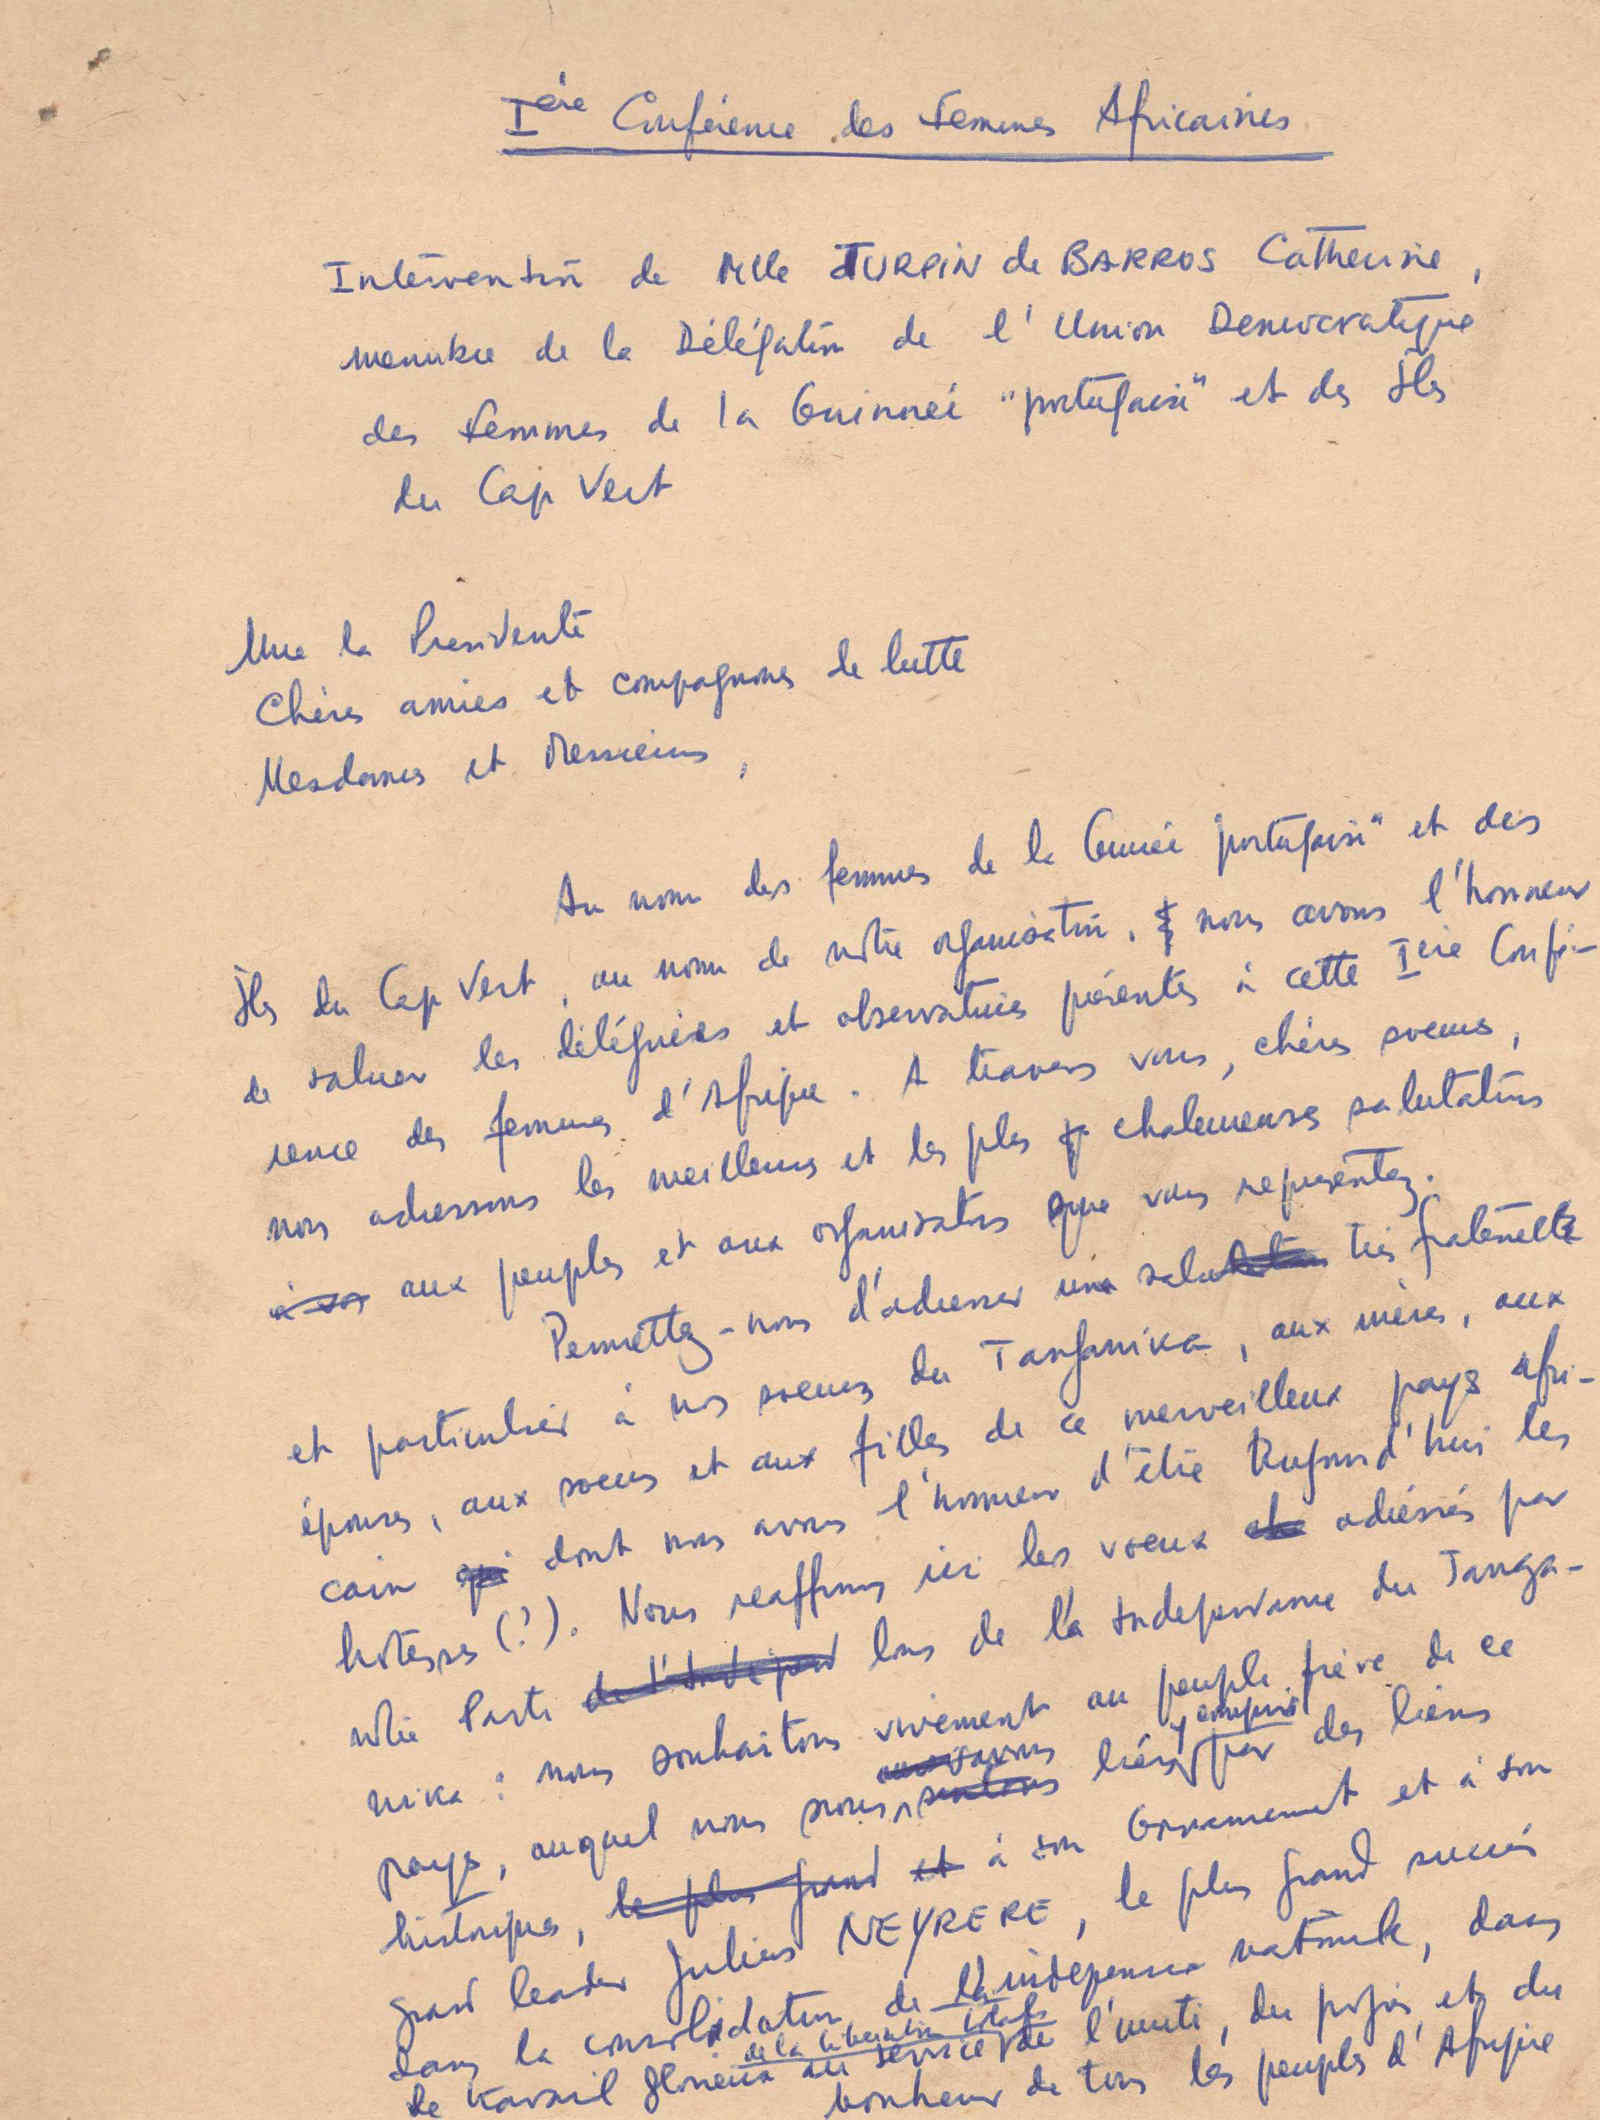 Ière Conférence des Femmes Africaines
Intervention de Mlle TURPIN de BARROS Catherine,
membre de la Délégation de l'Union Démocratique
des Femmes de la Guinnée "portugaise" et des Îles
du Cap Vert
Mme la Présidente
Chères amies et compagnons de lutte
Mesdames et Messieurs,
Au nom des femmes de la Guinée "portugaise" et des
Îles du Cap Vert, au nom de notre organisation, nous avons l'honneur
de saluer les déléguées et observatrices présentes à cette Ière Confé-
rence des femmes d'Afrique. A travers vous, chères soeurs,
nous adressons les meilleurs et les plus chaleureuses salutations
à vos aux peuples et aux organisations que vous représentez.
Permettez-nous d'adresser un salut très fraternelle
et particulier à nos soeurs du Tanganika, aux mères, aux
épouses, aux soeurs et aux filles de ce merveilleux pays afri-
cain qui dont nous avons l'honneur d'être aujourd'hui les
hôtesses (?). Nous reaffirmons ici les voeux adressés par
notre Parti de l'Indépend lors de l'Independance du Tanga-
nika : nous souhaitons vivement au peuple frère de ce
pays, auquel nous nous savons sentons liés, y compris par des liens
historiques, le plus grand et à son Gouvernement et à son
grand leader Julius NEYRERE, le plus grand succès
dans la consolidation de l'indépendance nationale, dans
le travail glorieux au service de la libération totale de l'unité, du progrès et du
bonheur de tous les peuples d'Afrique